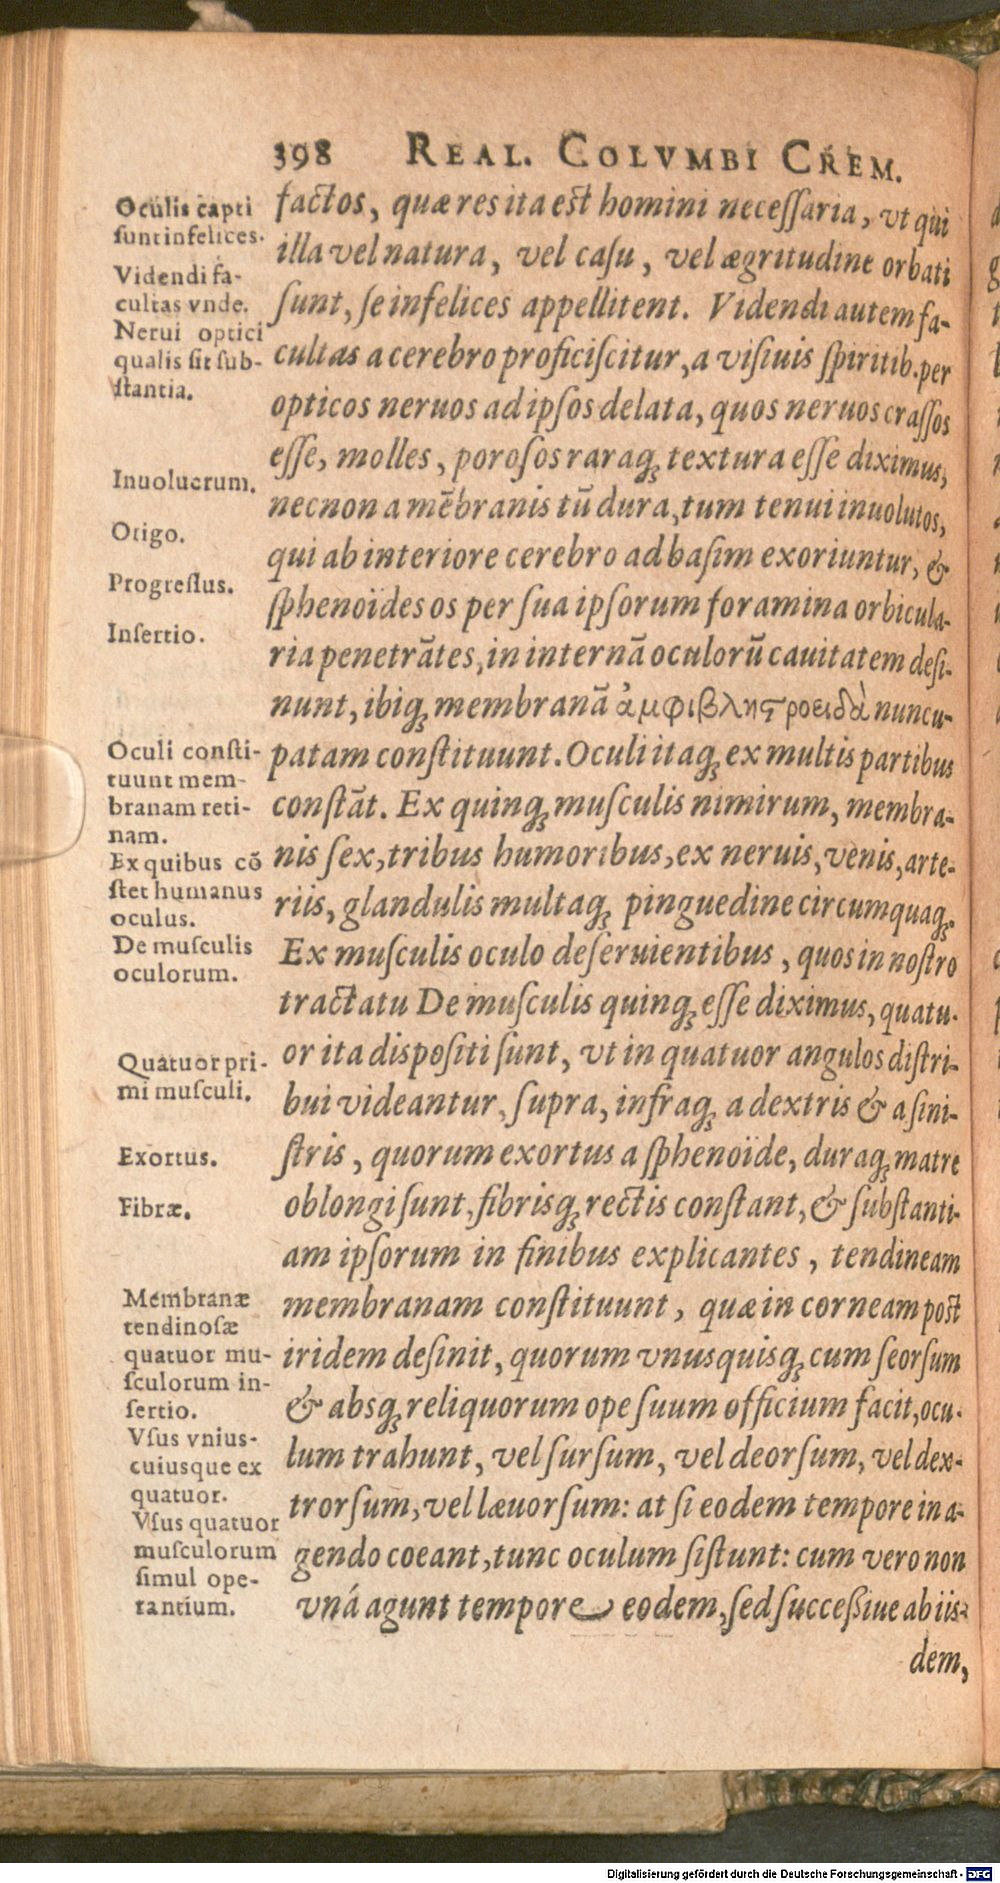 398 REAL. COLVMBI CREM.
Oculis capti
sunt infelices.
Videndi fa-
cultas vnde.
Nerui optici
qualis sit sub-
stantia.
Inuolucrum.
Origo.
Progressus.
Insertio.
Oculi consti-
tuunt mem-
branam reti-
nam.
Ex quibus cõ
stet humanus
oculus.
De musculis
oculorum.
Quatuor pri-
mi musculi.
Exortus.
Fibræ.
Membranæ
tendinosæ
quatuor mu-
sculorum in-
sertio.
Vsus vnius-
cuiusque ex
quatuor.
Vsus quatuor
musculorum
simul ope-
rantium.
factos, quæ res ita est homini necessaria, vt qui
illa vel natura, vel casu, vel ægritudine orbati
sunt, se infelices appellitent. Videndi autem fa-
cultas a cerebro proficiscitur, a visiuis spiritib. per
opticos neruos ad ipsos delata, quos neruos crassos
esse, molles, porosos raraq; textura esse diximus,
necnon a mẽbranis tũ dura, tum tenui inuolutos,
qui ab interiore cerebro ad basim exoriuntur, &
sphenoides os per sua ipsorum foramina orbicula-
ria penetrãtes, in internã oculorũ cauitatem desi-
nunt, ibiq; membranã ἀμφιβληστροειδὰ nuncu-
patam constituunt. Oculi itaq; ex multis partibus
constãt. Ex quinq; musculis nimirum, membra-
nis sex, tribus humoribus, ex neruis, venis, arte-
riis, glandulis multaq; pinguedine circumquaq;.
Ex musculis oculo deseruientibus, quos in nostro
tractatu De musculis quinq; esse diximus, quatu-
or ita dispositi sunt, vt in quatuor angulos distri-
bui videantur, supra, infraq; a dextris & a sini-
stris, quorum exortus a sphenoïde, duraq; matre
oblongi sunt, fibrisq; rectis constant, & substanti-
am ipsorum in finibus explicantes, tendineam
membranam constituunt, quæ in corneam post
iridem desinit, quorum vnusquisq; cum seorsum
& absq; reliquorum ope suum officium facit, ocu-
lum trahunt, vel sursum, vel deorsum, vel dex-
trorsum, vel læuorsum: at si eodem tempore in a-
gendo coeant, tunc oculum sistunt: cum vero non
vná agunt tempore eodem, sed successiue ab iis-
dem,
Digitalisierung gefördert durch die Deutsche Forschungsgemeinschaft - DFG